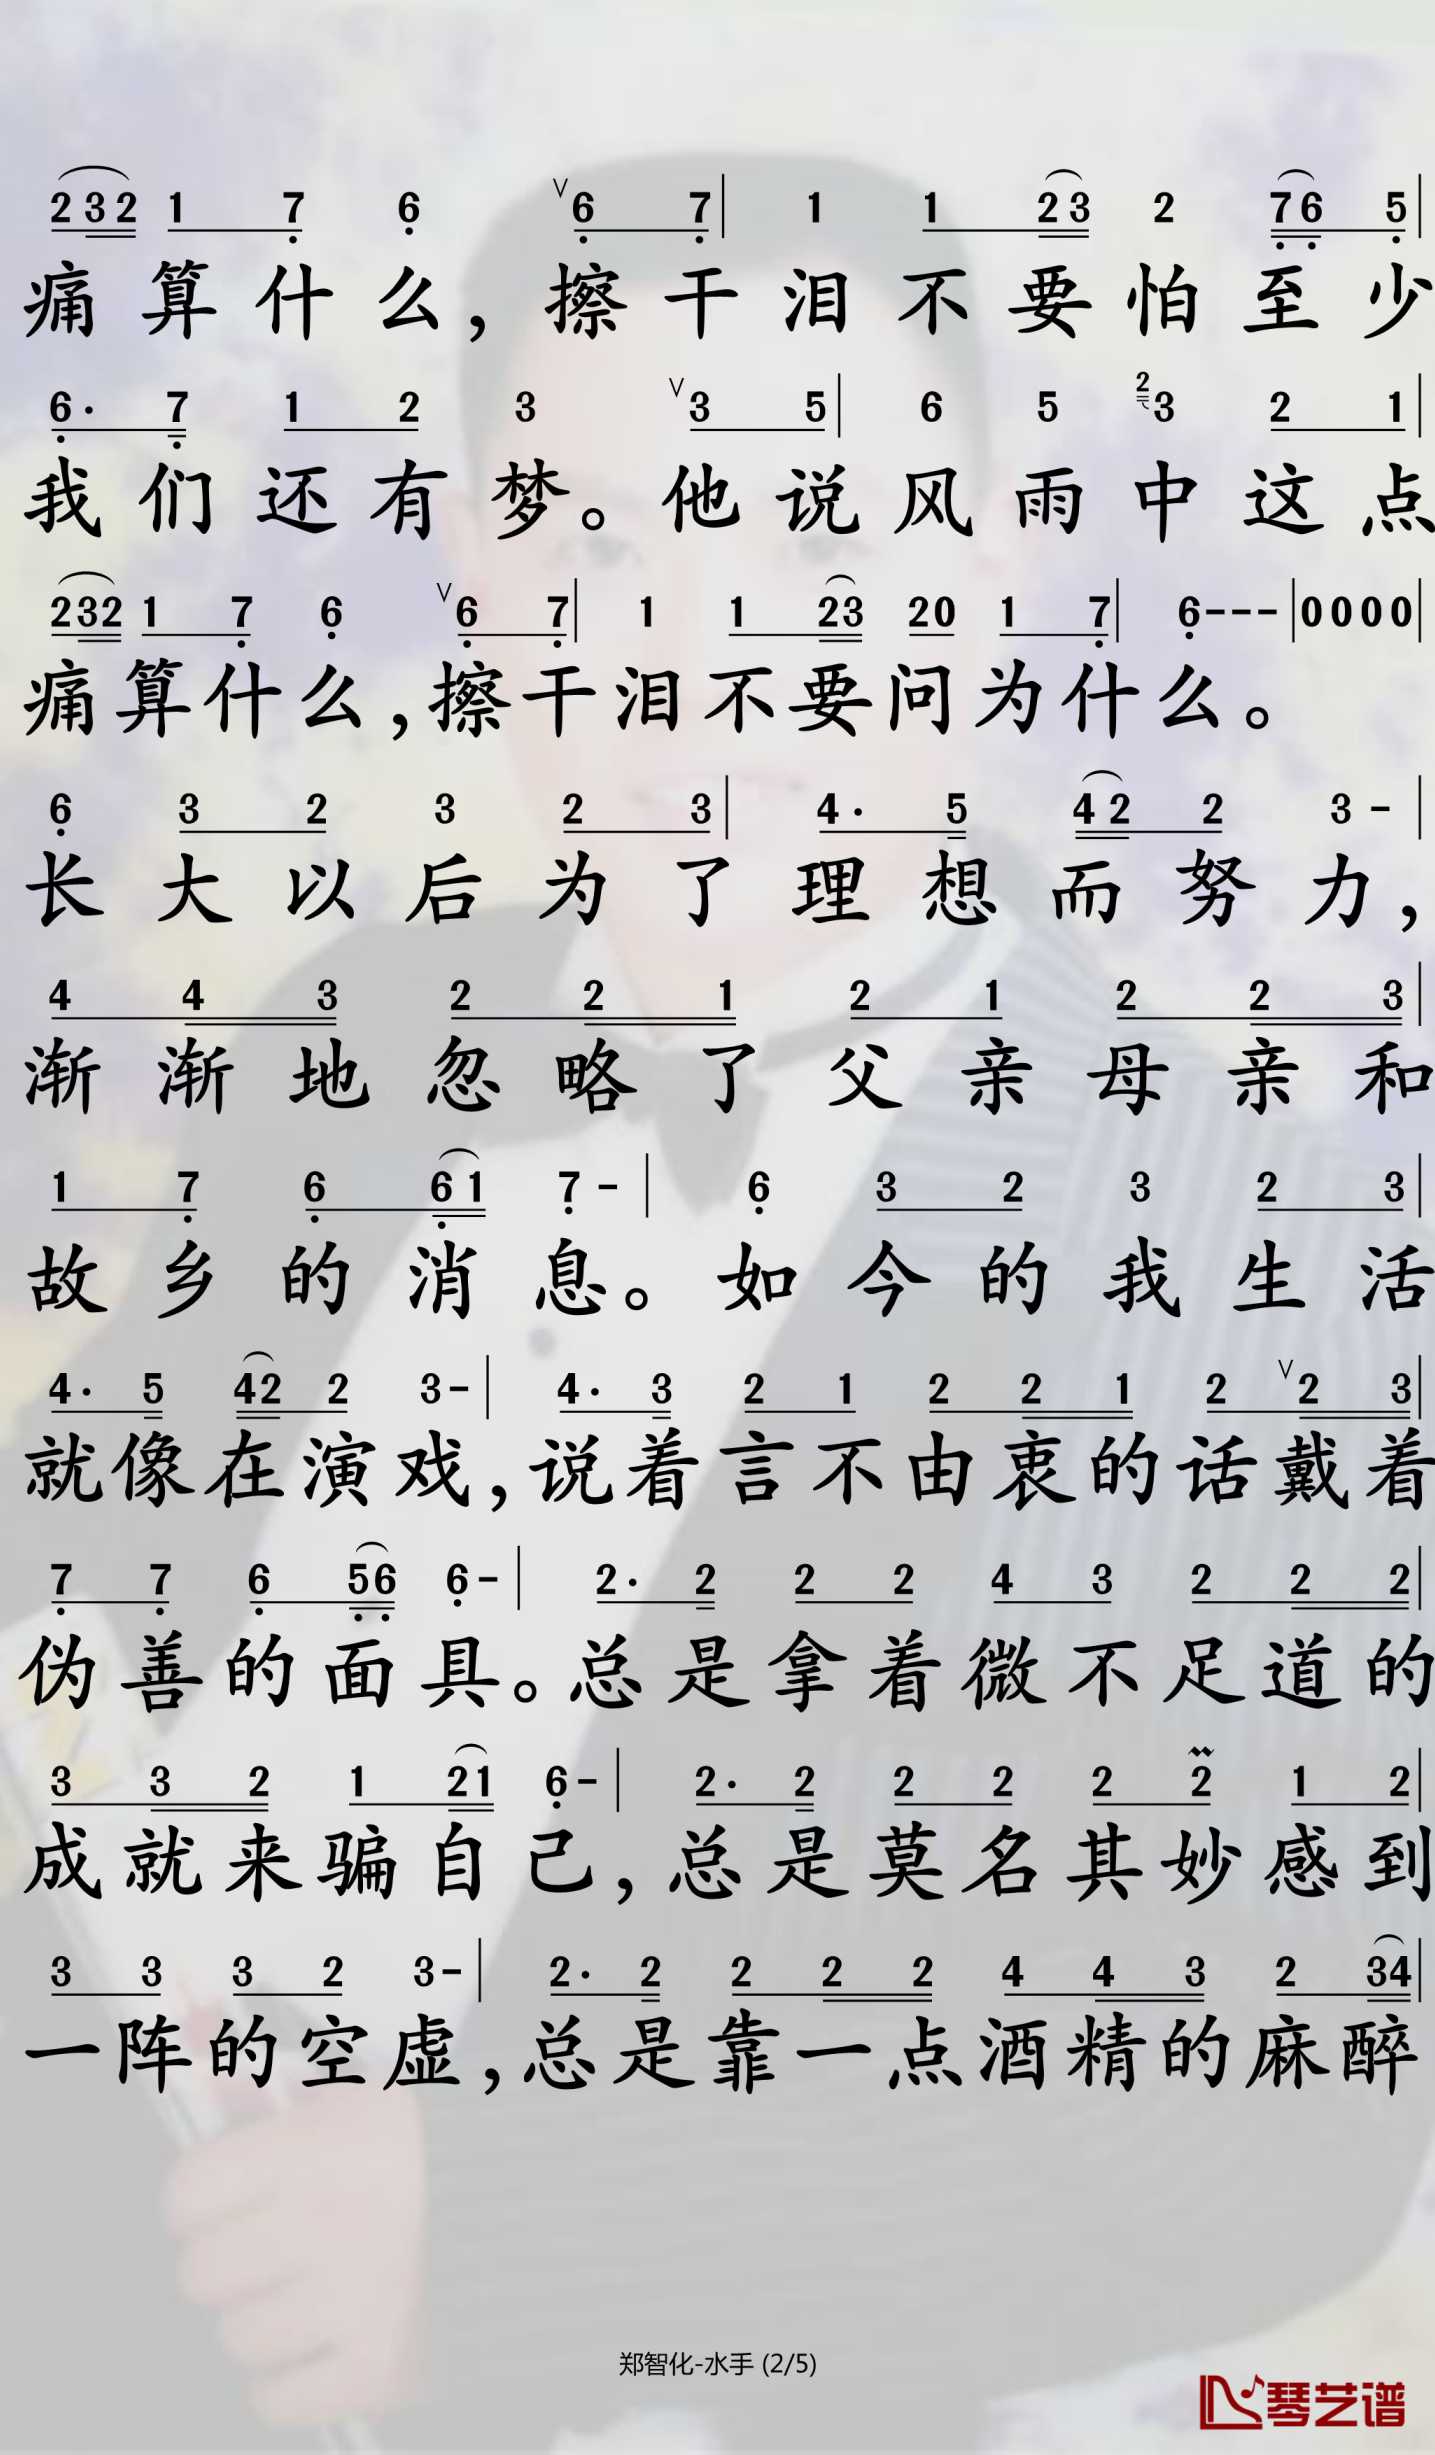 2 3 2 1 7 6 V 6 7 | 1 1 2 3 2 7 6 5 |
痛算什么，擦干泪不要怕至少
6· 7 1 2 3 V 3 5 | 6 5 2 3 2 1 |
我们还有梦。他说风雨中这点
2 3 2 1 7 6 V 6 7 | 1 1 2 3 2 0 1 7 | 6 - - - | 0 0 0 0 |
痛算什么，擦干泪不要问为什么。
6 3 2 3 2 3 | 4· 5 4 2 2 3 - |
长大以后为了理想而努力，
4 4 3 2 2 1 2 1 2 2 3 |
渐渐地忽略了父亲母亲和
1 7 6 6 1 7 - | 6 3 2 3 2 3 |
故乡的消息。如今的我生活
4· 5 4 2 2 3 - | 4· 3 2 1 2 2 1 2 V 2 3 |
就像在演戏，说着言不由衷的话戴着
7 7 6 5 6 6 - | 2· 2 2 2 4 3 2 2 2 |
伪善的面具。总是拿着微不足道的
3 3 2 1 2 1 6 - | 2· 2 2 2 2 2 1 2 |
成就来骗自己，总是莫名其妙感到
3 3 3 2 3 - | 2· 2 2 2 2 4 4 3 2 3 4 |
一阵的空虚，总是靠一点酒精的麻醉
郑智化-水手 (2/5)
琴艺谱